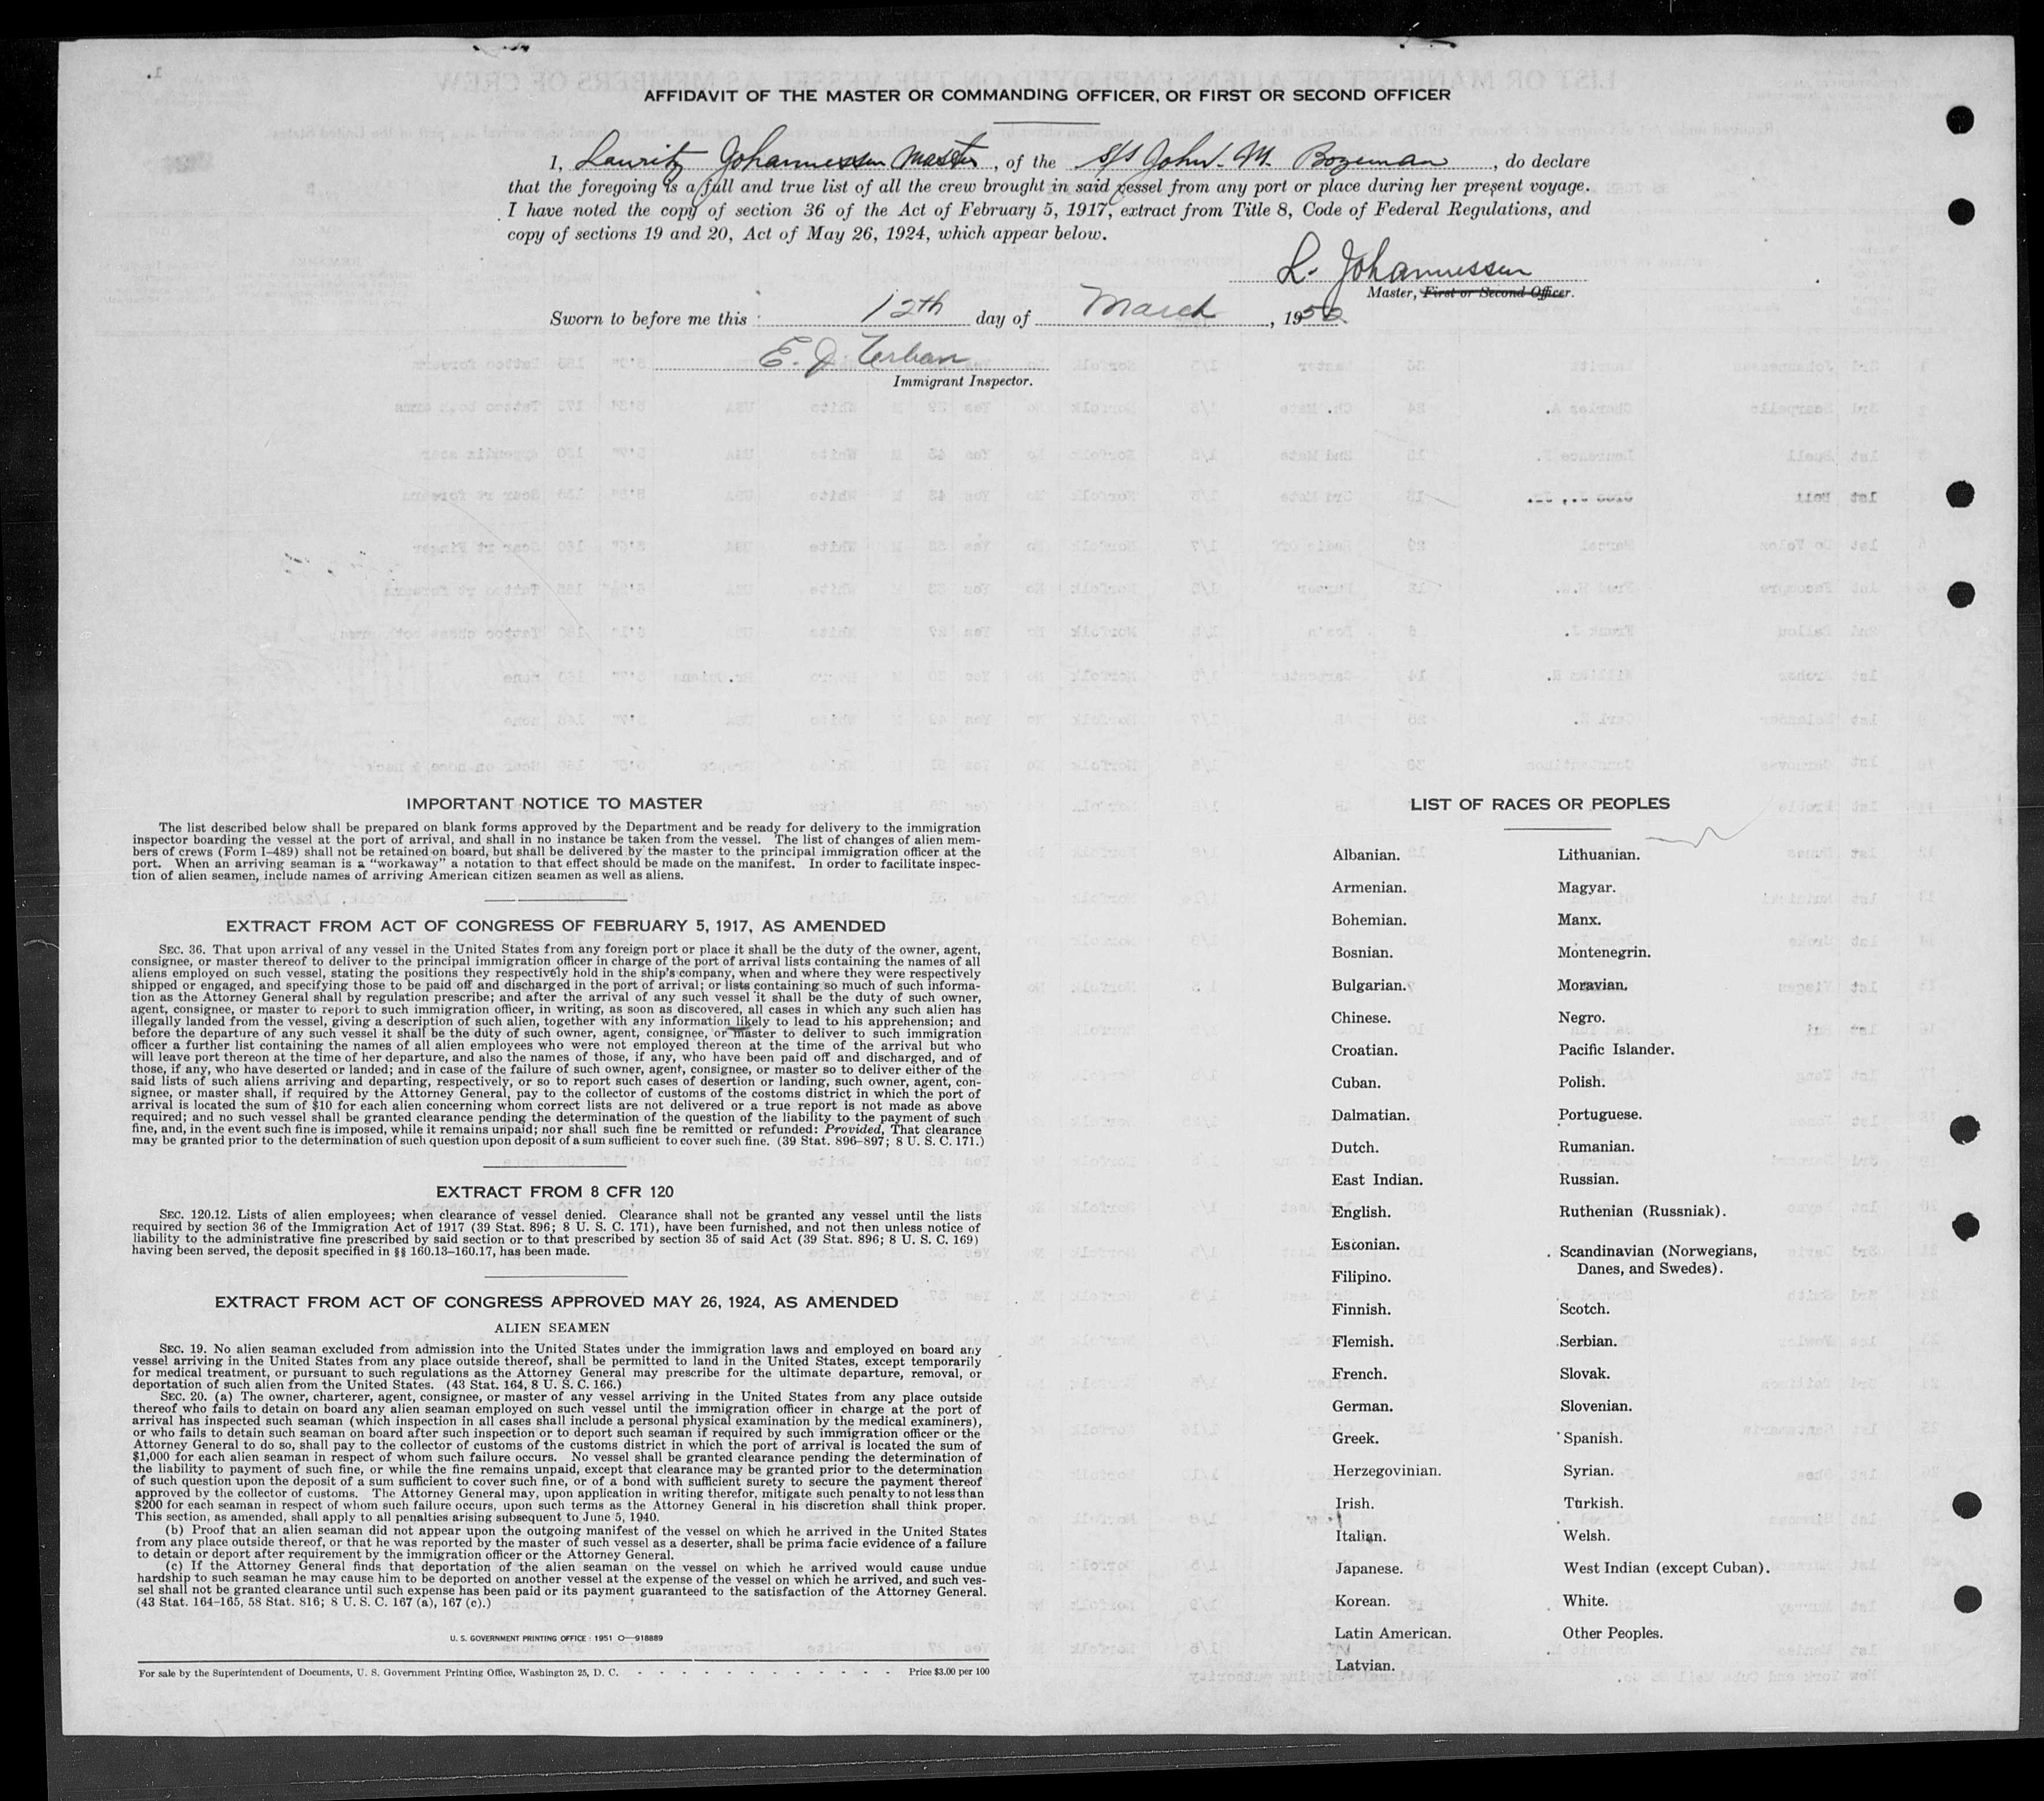 AFFIDAVIT OF THE MASTER OR COMMANDING OFFICER, OR FIRST OR SECOND OFFICER
I, Lauritz Johannessen Master, of the S/S John. M. Bozeman, do declare
that the foregoing is a full and true list of all the crew brought in said vessel from any port or place during her present voyage.
I have noted the copy of section 36 of the Act of February 5, 1917, extract from Title 8, Code of Federal Regulations, and
copy of sections 19 and 20, Act of May 26, 1924, which appear below.
L. Johannessen
Master, First or Second Officer.
Sworn to before me this 12th day of March, 1952
E. D.
Immigrant Inspector.
IMPORTANT NOTICE TO MASTER
The list described below shall be prepared on blank forms approved by the Department and be ready for delivery to the immigration
inspector boarding the vessel at the port of arrival, and shall in no instance be taken from the vessel. The list of changes of alien mem-
bers of crews (Form I-489) shall not be retained on board, but shall be delivered by the master to the principal immigration officer at the
port. When an arriving seaman is a "workaway" a notation to that effect should be made on the manifest. In order to facilitate inspec-
tion of alien seamen, include names of arriving American citizen seamen as well as aliens.
EXTRACT FROM ACT OF CONGRESS OF FEBRUARY 5, 1917, AS AMENDED
SEC. 36. That upon arrival of any vessel in the United States from any foreign port or place it shall be the duty of the owner, agent,
consignee, or master thereof to deliver to the principal immigration officer in charge of the port of arrival lists containing the names of all
aliens employed on such vessel, stating the positions they respectively hold in the ship's company, when and where they were respectively
shipped or engaged, and specifying those to be paid off and discharged in the port of arrival; or lists containing so much of such informa-
tion as the Attorney General shall by regulation prescribe; and after the arrival of any such vessel it shall be the duty of such owner,
agent, consignee, or master to report to such immigration officer, in writing, as soon as discovered, all cases in which any such alien has
illegally landed from the vessel, giving a description of such alien, together with any information likely to lead to his apprehension; and
before the departure of any such vessel it shall be the duty of such owner, agent, consignee, or master to deliver to such immigration
officer a further list containing the names of all alien employees who were not employed thereon at the time of the arrival but who
will leave port thereon at the time of her departure, and also the names of those, if any, who have been paid off and discharged, and of
those, if any, who have deserted or landed; and in case of the failure of such owner, agent, consignee, or master so to deliver either of the
said lists of such aliens arriving and departing, respectively, or so to report such cases of desertion or landing, such owner, agent, con-
signee, or master shall, if required by the Attorney General, pay to the collector of customs of the costoms district in which the port of
arrival is located the sum of $10 for each alien concerning whom correct lists are not delivered or a true report is not made as above
required; and no such vessel shall be granted clearance pending the determination of the question of the liability to the payment of such
fine, and, in the event such fine is imposed, while it remains unpaid; nor shall such fine be remitted or refunded: Provided, That clearance
may be granted prior to the determination of such question upon deposit of a sum sufficient to cover such fine. (39 Stat. 896-897; 8 U. S. C. 171.)
EXTRACT FROM 8 CFR 120
SEC. 120.12. Lists of alien employees; when clearance of vessel denied. Clearance shall not be granted any vessel until the lists
required by section 36 of the Immigration Act of 1917 (39 Stat. 896; 8 U. S. C. 171), have been furnished, and not then unless notice of
liability to the administrative fine prescribed by said section or to that prescribed by section 35 of said Act (39 Stat. 896; 8 U. S. C. 169)
having been served, the deposit specified in §§ 160.13-160.17, has been made.
EXTRACT FROM ACT OF CONGRESS APPROVED MAY 26, 1924, AS AMENDED
ALIEN SEAMEN
SEC. 19. No alien seaman excluded from admission into the United States under the immigration laws and employed on board any
vessel arriving in the United States from any place outside thereof, shall be permitted to land in the United States, except temporarily
for medical treatment, or pursuant to such regulations as the Attorney General may prescribe for the ultimate departure, removal, or
deportation of such alien from the United States. (43 Stat. 164, 8 U. S. C. 166.)
SEC. 20. (a) The owner, charterer, agent, consignee, or master of any vessel arriving in the United States from any place outside
thereof who fails to detain on board any alien seaman employed on such vessel until the immigration officer in charge at the port of
arrival has inspected such seaman (which inspection in all cases shall include a personal physical examination by the medical examiners),
or who fails to detain such seaman on board after such inspection or to deport such seaman if required by such immigration officer or the
Attorney General to do so, shall pay to the collector of customs of the customs district in which the port of arrival is located the sum of
$1,000 for each alien seaman in respect of whom such failure occurs. No vessel shall be granted clearance pending the determination of
the liability to payment of such fine, or while the fine remains unpaid, except that clearance may be granted prior to the determination
of such question upon the deposit of a sum sufficient to cover such fine, or of a bond with sufficient surety to secure the payment thereof
approved by the collector of customs. The Attorney General may, upon application in writing therefor, mitigate such penalty to not less than
$200 for each seaman in respect of whom such failure occurs, upon such terms as the Attorney General in his discretion shall think proper.
This section, as amended, shall apply to all penalties arising subsequent to June 5, 1940.
(b) Proof that an alien seaman did not appear upon the outgoing manifest of the vessel on which he arrived in the United States
from any place outside thereof, or that he was reported by the master of such vessel as a deserter, shall be prima facie evidence of a failure
to detain or deport after requirement by the immigration officer or the Attorney General.
(c) If the Attorney General finds that deportation of the alien seaman on the vessel on which he arrived would cause undue
hardship to such seaman he may cause him to be deported on another vessel at the expense of the vessel on which he arrived, and such ves-
sel shall not be granted clearance until such expense has been paid or its payment guaranteed to the satisfaction of the Attorney General.
(43 Stat. 164-165, 58 Stat. 816; 8 U. S. C. 167 (a), 167 (c).)
U. S. GOVERNMENT PRINTING OFFICE : 1951 O—918889
For sale by the Superintendent of Documents, U. S. Government Printing Office, Washington 25, D. C. - - - - - - - - - - - - Price $3.00 per 100
LIST OF RACES OR PEOPLES
Albanian.
Armenian.
Bohemian.
Bosnian.
Bulgarian.
Chinese.
Croatian.
Cuban.
Dalmatian.
Dutch.
East Indian.
English.
Estonian.
Filipino.
Finnish.
Flemish.
French.
German.
Greek.
Herzegovinian.
Irish.
Italian.
Japanese.
Korean.
Latin American.
Latvian.
Lithuanian.
Magyar.
Manx.
Montenegrin.
Moravian.
Negro.
Pacific Islander.
Polish.
Portuguese.
Rumanian.
Russian.
Ruthenian (Russniak).
Scandinavian (Norwegians,
Danes, and Swedes).
Scotch.
Serbian.
Slovak.
Slovenian.
Spanish.
Syrian.
Turkish.
Welsh.
West Indian (except Cuban).
White.
Other Peoples.